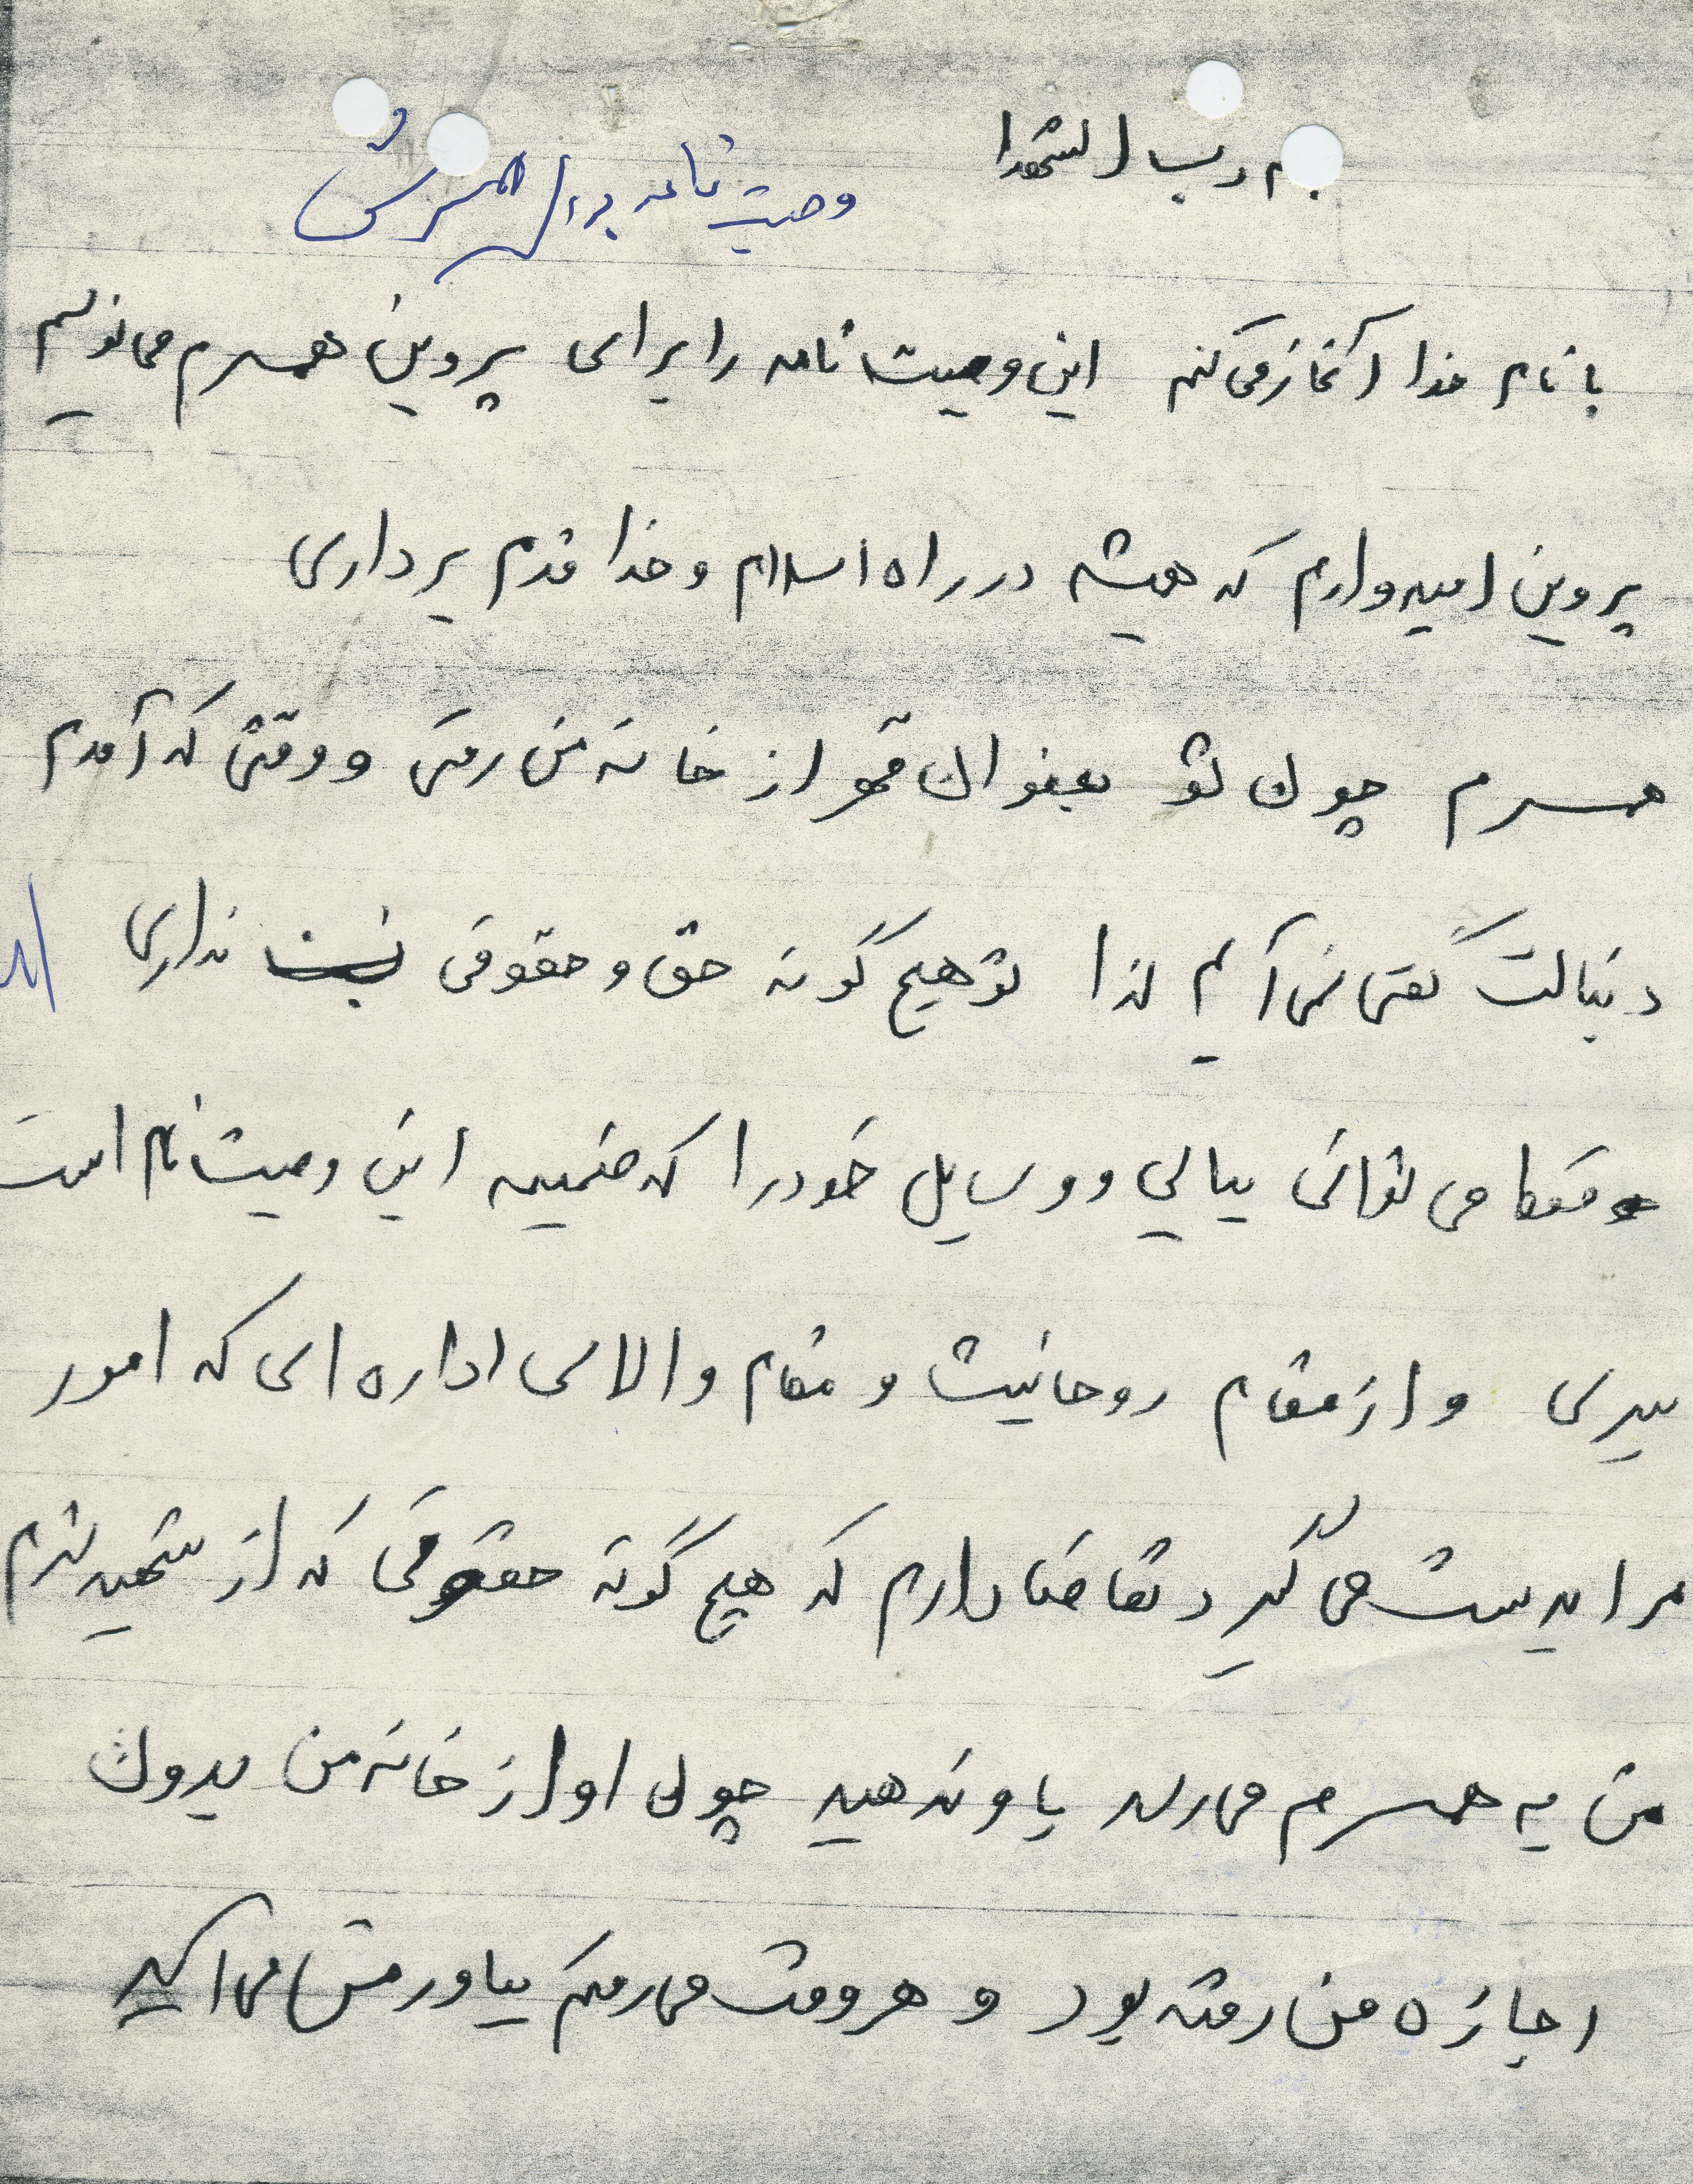 بسم رب الشهدا
وصیت نامه برای همسرش
با نام خدا آغاز می کنم این وصیت نامه را برای پروین همسرم می نویسم
پروین امیدوارم که همیشه در راه اسلام و خدا قدم برداری
همسرم چون تو بعنوان قهر از خانه من رفتی و وقتی که آمدم
دنبالت گفتی نمی آیم لذا تو هیچ گونه حق و حقوقی نداری
و فقط می توانی بیایی و وسایل خود را که ضمیمه این وصیت نام است
ببری و از مقام روحانیت و مقام والای اداره ای که امور
مرا بدست می گیرد تقاضا دارم که هیچ گونه حقوقی که از شهید شدم
من به همسرم می رسد با و ندهید چون او از خانه من بدون
اجازه من رفته بود و هر وقت می رفتم بیاورمش می